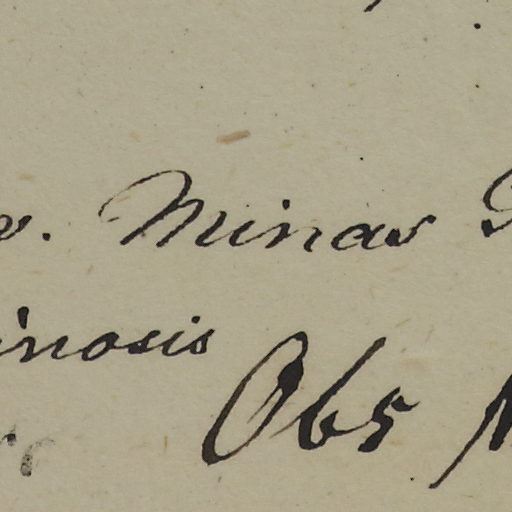 . Minas
inosis
Obs